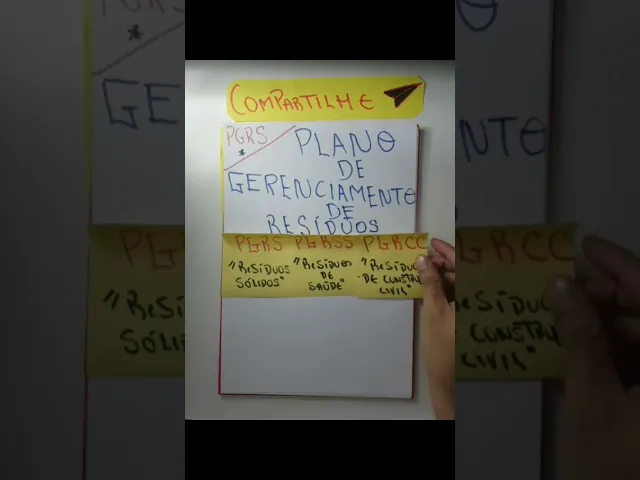 COMPARTILHE
PGRS
*
PLANO
DE
GERENCIAMENTO
DE
RESÍDUOS
PGRS PGRSS PGRCC
"RESÍDUOS SÓLIDOS"
"RESÍDUOS DE SAÚDE"
"RESÍDUOS DE CONSTRUC CIVIL"